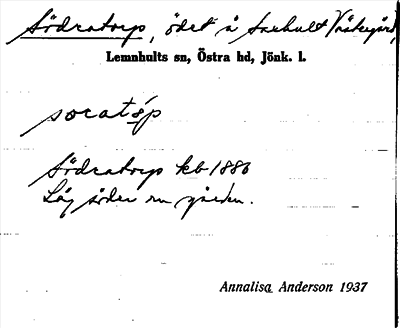 Södratorp, ödet å Saxhult Västergård,
Lemnhults sn, Östra hd, Jönk. l.
soratóp
Södratorp kb 1886
Låg söder om gården.
Annalisa Anderson 1937